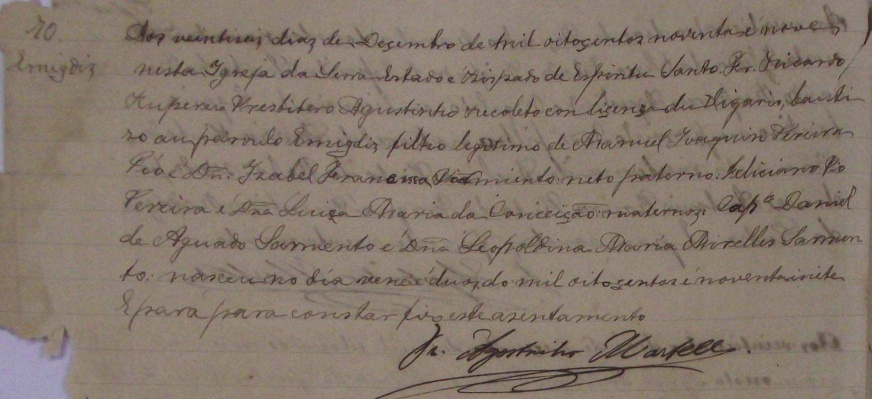 20.
Emigdis
Aos veintiseis dias de Desembro de mil oitosentos noventa é nove
nesta Igreja da Serra Estado e Vispado de Espiritu Santo. Fr. Ricardo
Presbitero Agustinho recoleto con lisensa du Vigario, bauti
zo au parvulo Emigdis, filho legitimo de Manuel Joaquin Pereira
Pio é Dña. Izabel Sarmiento: neto paterno: Feliciano Pio
Pereira é Dña Luiça Maria da Conceição: maternoz: Cap.ª Daniel
de Aguado Sarmento é Dña Leopoldina Maria Mirelles Sarmen
to: nasceu no dia dos do mil oitosentos é noventaisiete
E para para constar fiz este asentamento
Fr. Agostinho Martell.